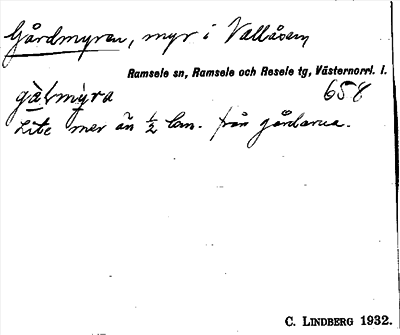 Gårdmyran, myr i Vallåsen
Ramsele sn, Ramsele och Resele tg, Västernorrl. l.
658
Lite mer än ½ km. från gårdarna.
C. LINDBERG 1932.